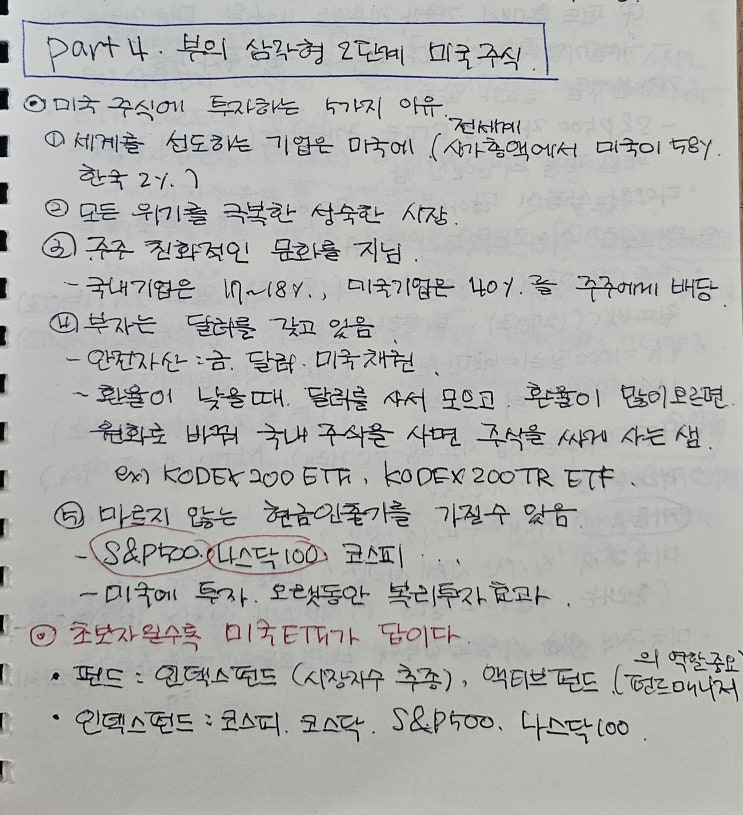 part 4. 부의 삼각형 2단계 미국주식.
⊙ 미국 주식에 투자하는 5가지 이유.
① 세계를 선도하는 기업은 미국에 (전세계 시가총액에서 미국이 58%.
한국 2%.)
② 모든 위기를 극복한 성숙한 시장.
③ 주주 친화적인 문화를 지님.
- 국내기업은 17~18%., 미국기업은 40%.를 주주에게 배당.
④ 부자는 달러를 갖고 있음.
- 안전자산 : 금. 달러. 미국채권.
- 환율이 낮을때. 달러를 사서 모으고. 환율이 많이오르면.
원화로 바꿔 국내 주식을 사면 주식을 싸게 사는 샘.
ex) KODEX 200 ETF, KODEX 200TR ETF.
⑤ 마르지 않는 현금인출기를 가질수 있음.
- S&P500. 나스닥100. 코스피 ...
- 미국에 투자. 오랫동안 복리투자효과.
⊙ 초보자일수록 미국ETF가 답이다.
• 펀드 : 인덱스펀드 (시장지수 추종), 액티브펀드. (펀드매니저의 역할중요)
• 인덱스펀드 : 코스피. 코스닥. S&P500. 나스닥100.